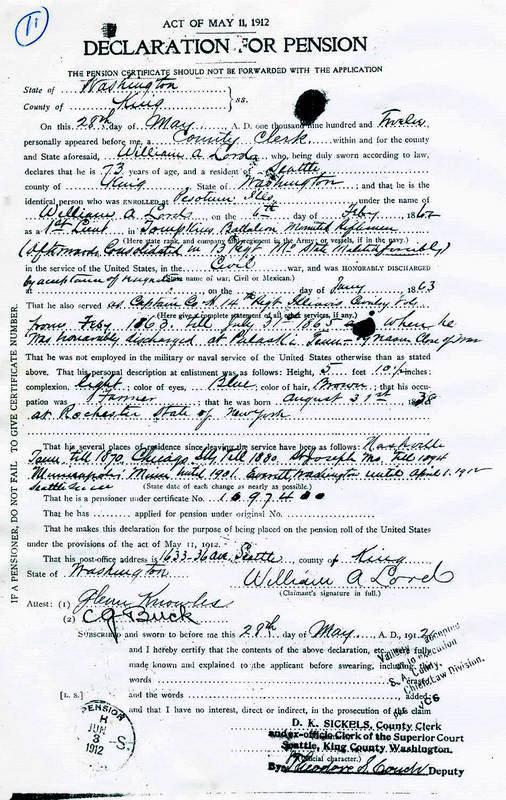 11
ACT OF MAY 11, 1912
DECLARATION FOR PENSION
THE PENSION CERTIFICATE SHOULD NOT BE FORWARDED WITH THE APPLICATION
State of Washington
County of King } ss.
On this 28th day of May, A. D. one thousand nine hundred and Twelve
personally appeared before me, a County Clerk within and for the county
and State aforesaid, William A Lord, who, being duly sworn according to law,
declares that he is 73 years of age, and a resident of Seattle
county of King, State of Washington; and that he is the
identical person who was ENROLLED at Pesotum Ills under the name of
William A. Lord, on the 6th day of Feby, 1862
as a 1st Lieut in Battalion Mounted Riflemen
(Here state rank, and company and regiment in the Army, or vessels, if in the navy.)
(Afterwards Consolidated in Regt Mo State Militia)
in the service of the United States, in the Civil war, and was HONORABLY DISCHARGED
(State name of war, Civil or Mexican.)
by acceptance of resignation, on the day of Jany, 1863
That he also served as Captain Co 14th Regt Illinois Cavly Vols
(Here give a complete statement of all other services, if any.)
from Feby 1863 till July 31st 1865 when he
was honorably discharged at Pulaski Tenn by reason Close of War
That he was not employed in the military or naval service of the United States otherwise than as stated
above. That his personal description at enlistment was as follows: Height, 5 feet 10 inches;
complexion, Light; color of eyes, Blue; color of hair, Brown; that his occu-
pation was Farmer; that he was born August 31st 1838
at Rochester State of New York
That his several places of residence since leaving the service have been as follows: Nashville
Tenn till 1870. Chicago Ills till 1880. St Joseph Mo till 1894
Minneapolis Minn until 1901. Everett, Washington until April 1. 1912
Seattle since
(State date of each change as nearly as possible.)
That he is a pensioner under certificate No.
That he has applied for pension under original No.
That he makes this declaration for the purpose of being placed on the pension roll of the United States
under the provisions of the act of May 11, 1912.
That his post-office address is 1633-36 ave Seattle, county of King
State of Washington
William A Lord
(Claimant's signature in full.)
Attest: (1) Glenn Knowles
(2) C G Buck
SUBSCRIBED and sworn to before me this 28th day of May, A. D., 1912
and I hereby certify that the contents of the above declaration, etc., were fully
made known and explained to the applicant before swearing, including the
words erased,
[L. S.] and the words, added;
and that I have no interest, direct or indirect, in the prosecution of this claim
D. K. SICKELS, County Clerk
and ex-officio Clerk of the Superior Court
Seattle, King County, Washington.
(Official character.)
By Theodore S Couch Deputy
accepted
as to execution
S. A. Cuddy,
Chief Law Division.
PENSION
JUN
3
1912
IF A PENSIONER, DO NOT FAIL TO GIVE CERTIFICATE NUMBER.